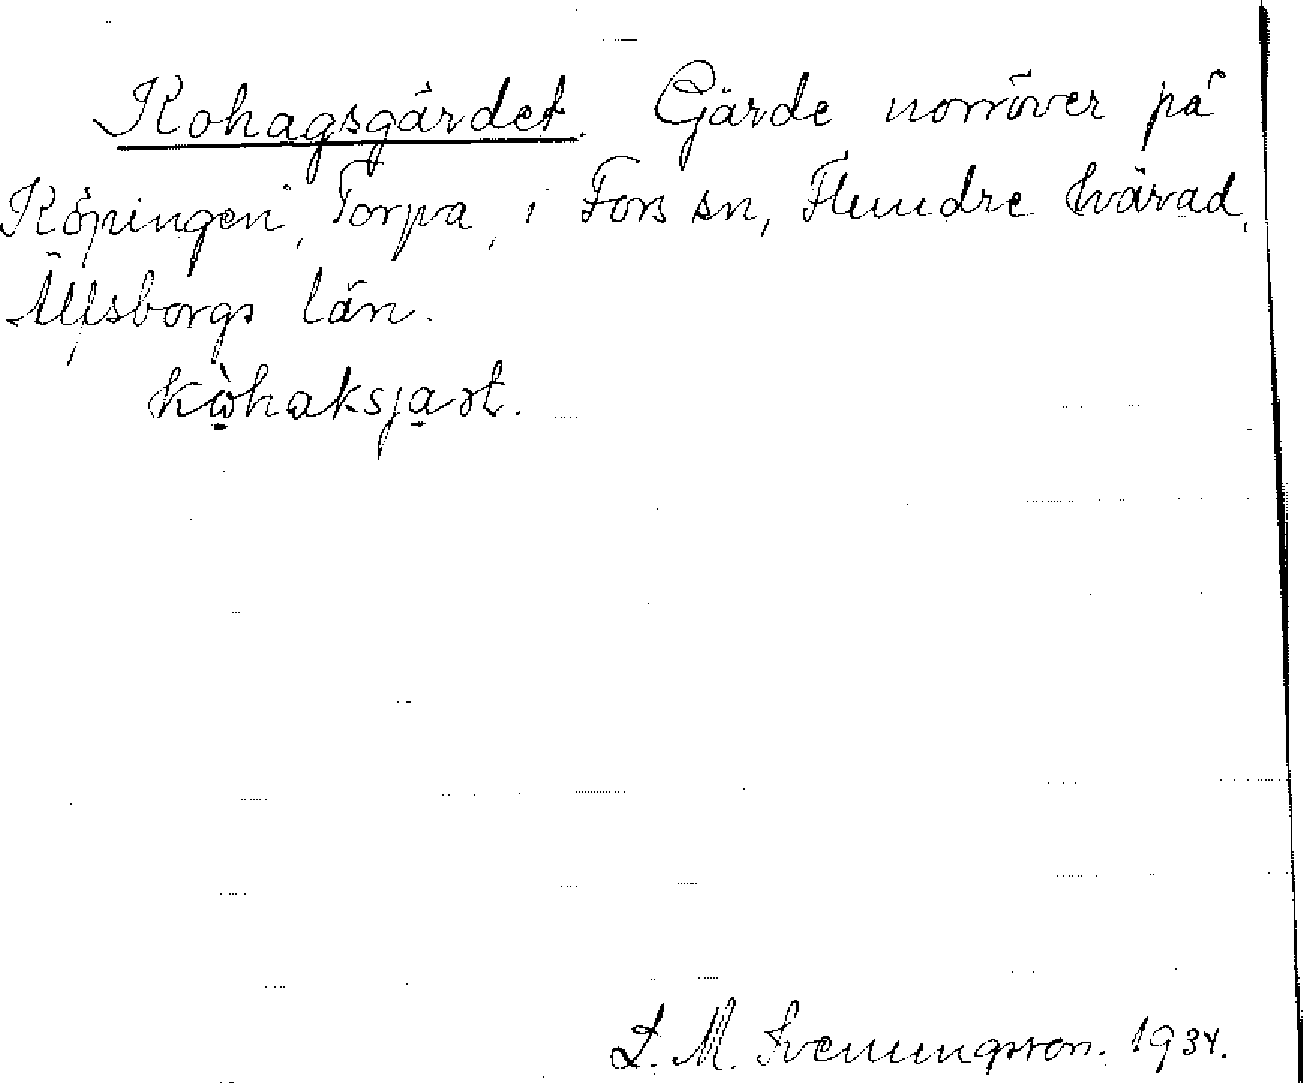 Kohagsgärdet. Gärde norröver på
Köpingen, Torpa, i Fors sn, Flundre härad,
Älfsborgs län.
kὼhaksja̱rt.
L. M. Svenungsson. 1934.